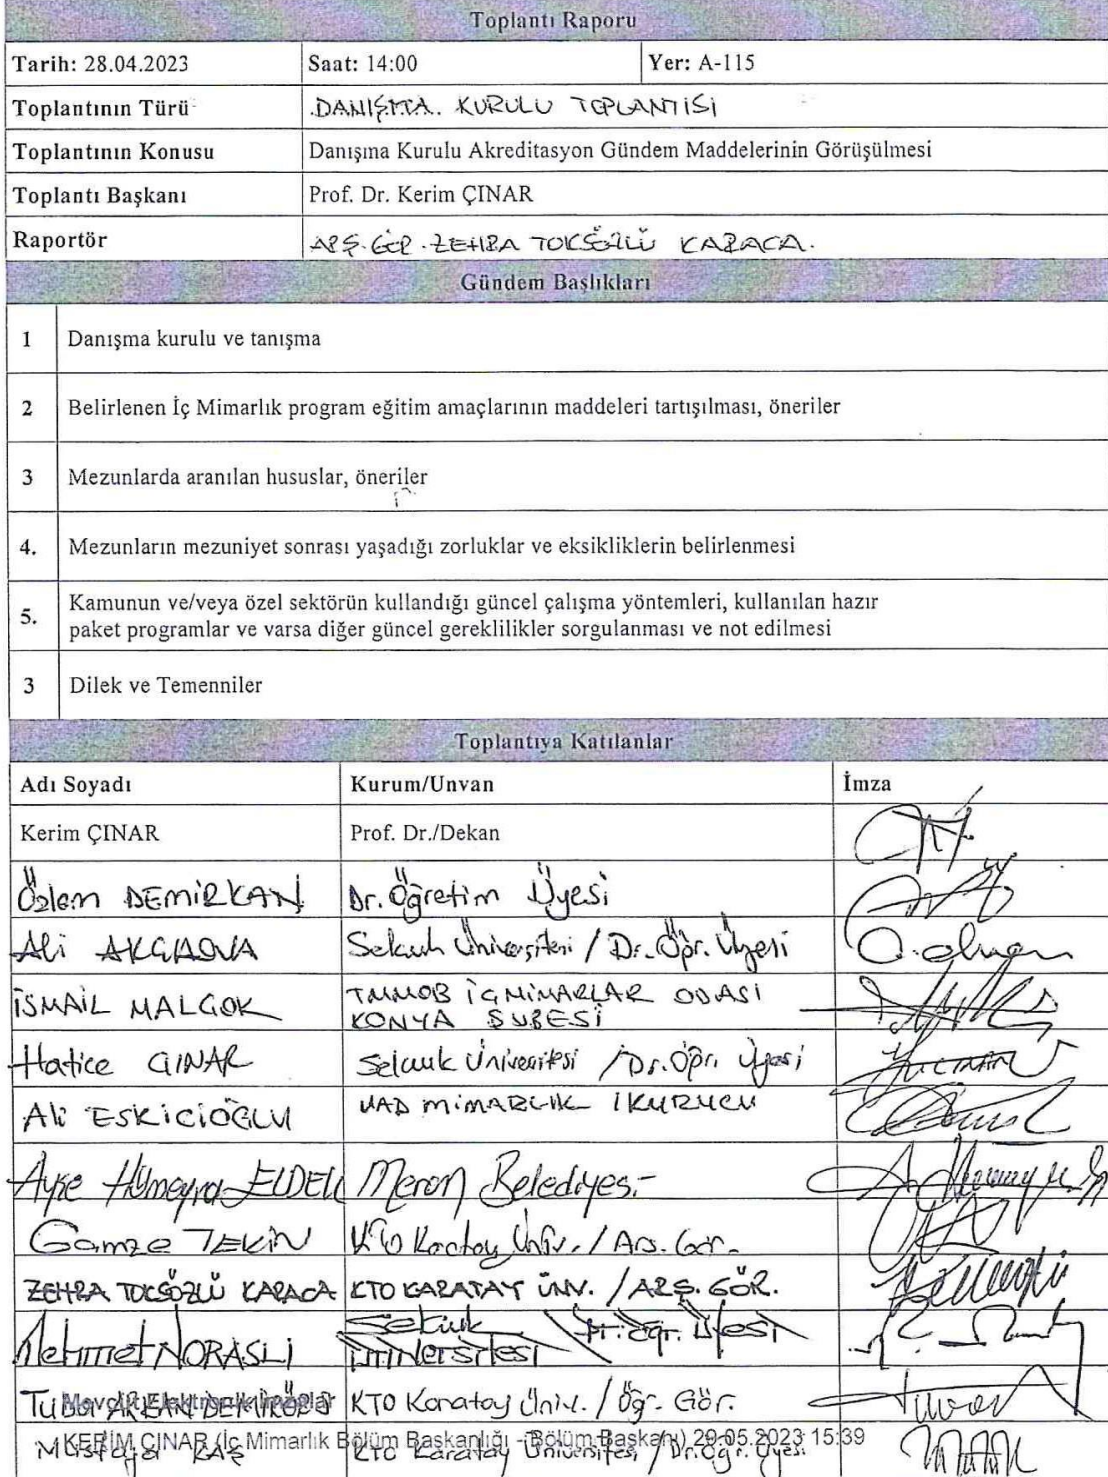 Toplantı Raporu
Tarih: 28.04.2023 Saat: 14:00 Yer: A-115
Toplantının Türü DANIŞMA KURULU TOPLANTISI
Toplantının Konusu Danışma Kurulu Akreditasyon Gündem Maddelerinin Görüşülmesi
Toplantı Başkanı Prof. Dr. Kerim ÇINAR
Raportör ARŞ. GÖR. ZEHRA TOKSÖZLÜ KARACA.
Gündem Başlıkları
1 Danışma kurulu ve tanışma
2 Belirlenen İç Mimarlık program eğitim amaçlarının maddeleri tartışılması, öneriler
3 Mezunlarda aranılan hususlar, öneriler
4. Mezunların mezuniyet sonrası yaşadığı zorluklar ve eksikliklerin belirlenmesi
5. Kamunun ve/veya özel sektörün kullandığı güncel çalışma yöntemleri, kullanılan hazır
paket programlar ve varsa diğer güncel gereklilikler sorgulanması ve not edilmesi
3 Dilek ve Temenniler
Toplantıya Katılanlar
Adı Soyadı Kurum/Unvan İmza
Kerim ÇINAR Prof. Dr./Dekan
Özlem DEMİRKAN Dr. Öğretim Üyesi
Ali Selçuk Üniversitesi / Dr. Öğr. Üyesi
İSMAİL MALGOK TMMOB İÇMİMARLAR ODASI
KONYA ŞUBESİ
Hatice ÇINAR Selçuk Üniversitesi / Dr. Öğr. Üyesi
Ali ESKİCİOĞLU MİMARLIK / KURUCU
Ayşe Hümeyra Meram Belediyesi
Gamze TEKİN KTO Karatay Üniv. / Arş. Gör.
ZEHRA TOKSÖZLÜ KARACA KTO KARATAY ÜNV. / ARŞ. GÖR.
Mehmet NORASLI Selçuk Üniversitesi Dr. Öğr. Üyesi
Mevcut Elektronik İmzalar
Tuba KTO Karatay Üniv. / Öğr. Gör.
KERİM ÇINAR (İç Mimarlık Bölüm Başkanlığı - Bölüm Başkanı) 29.05.2023 15:39
Mustafa KTO Karatay Üniversitesi / Dr. Öğr. Üyesi